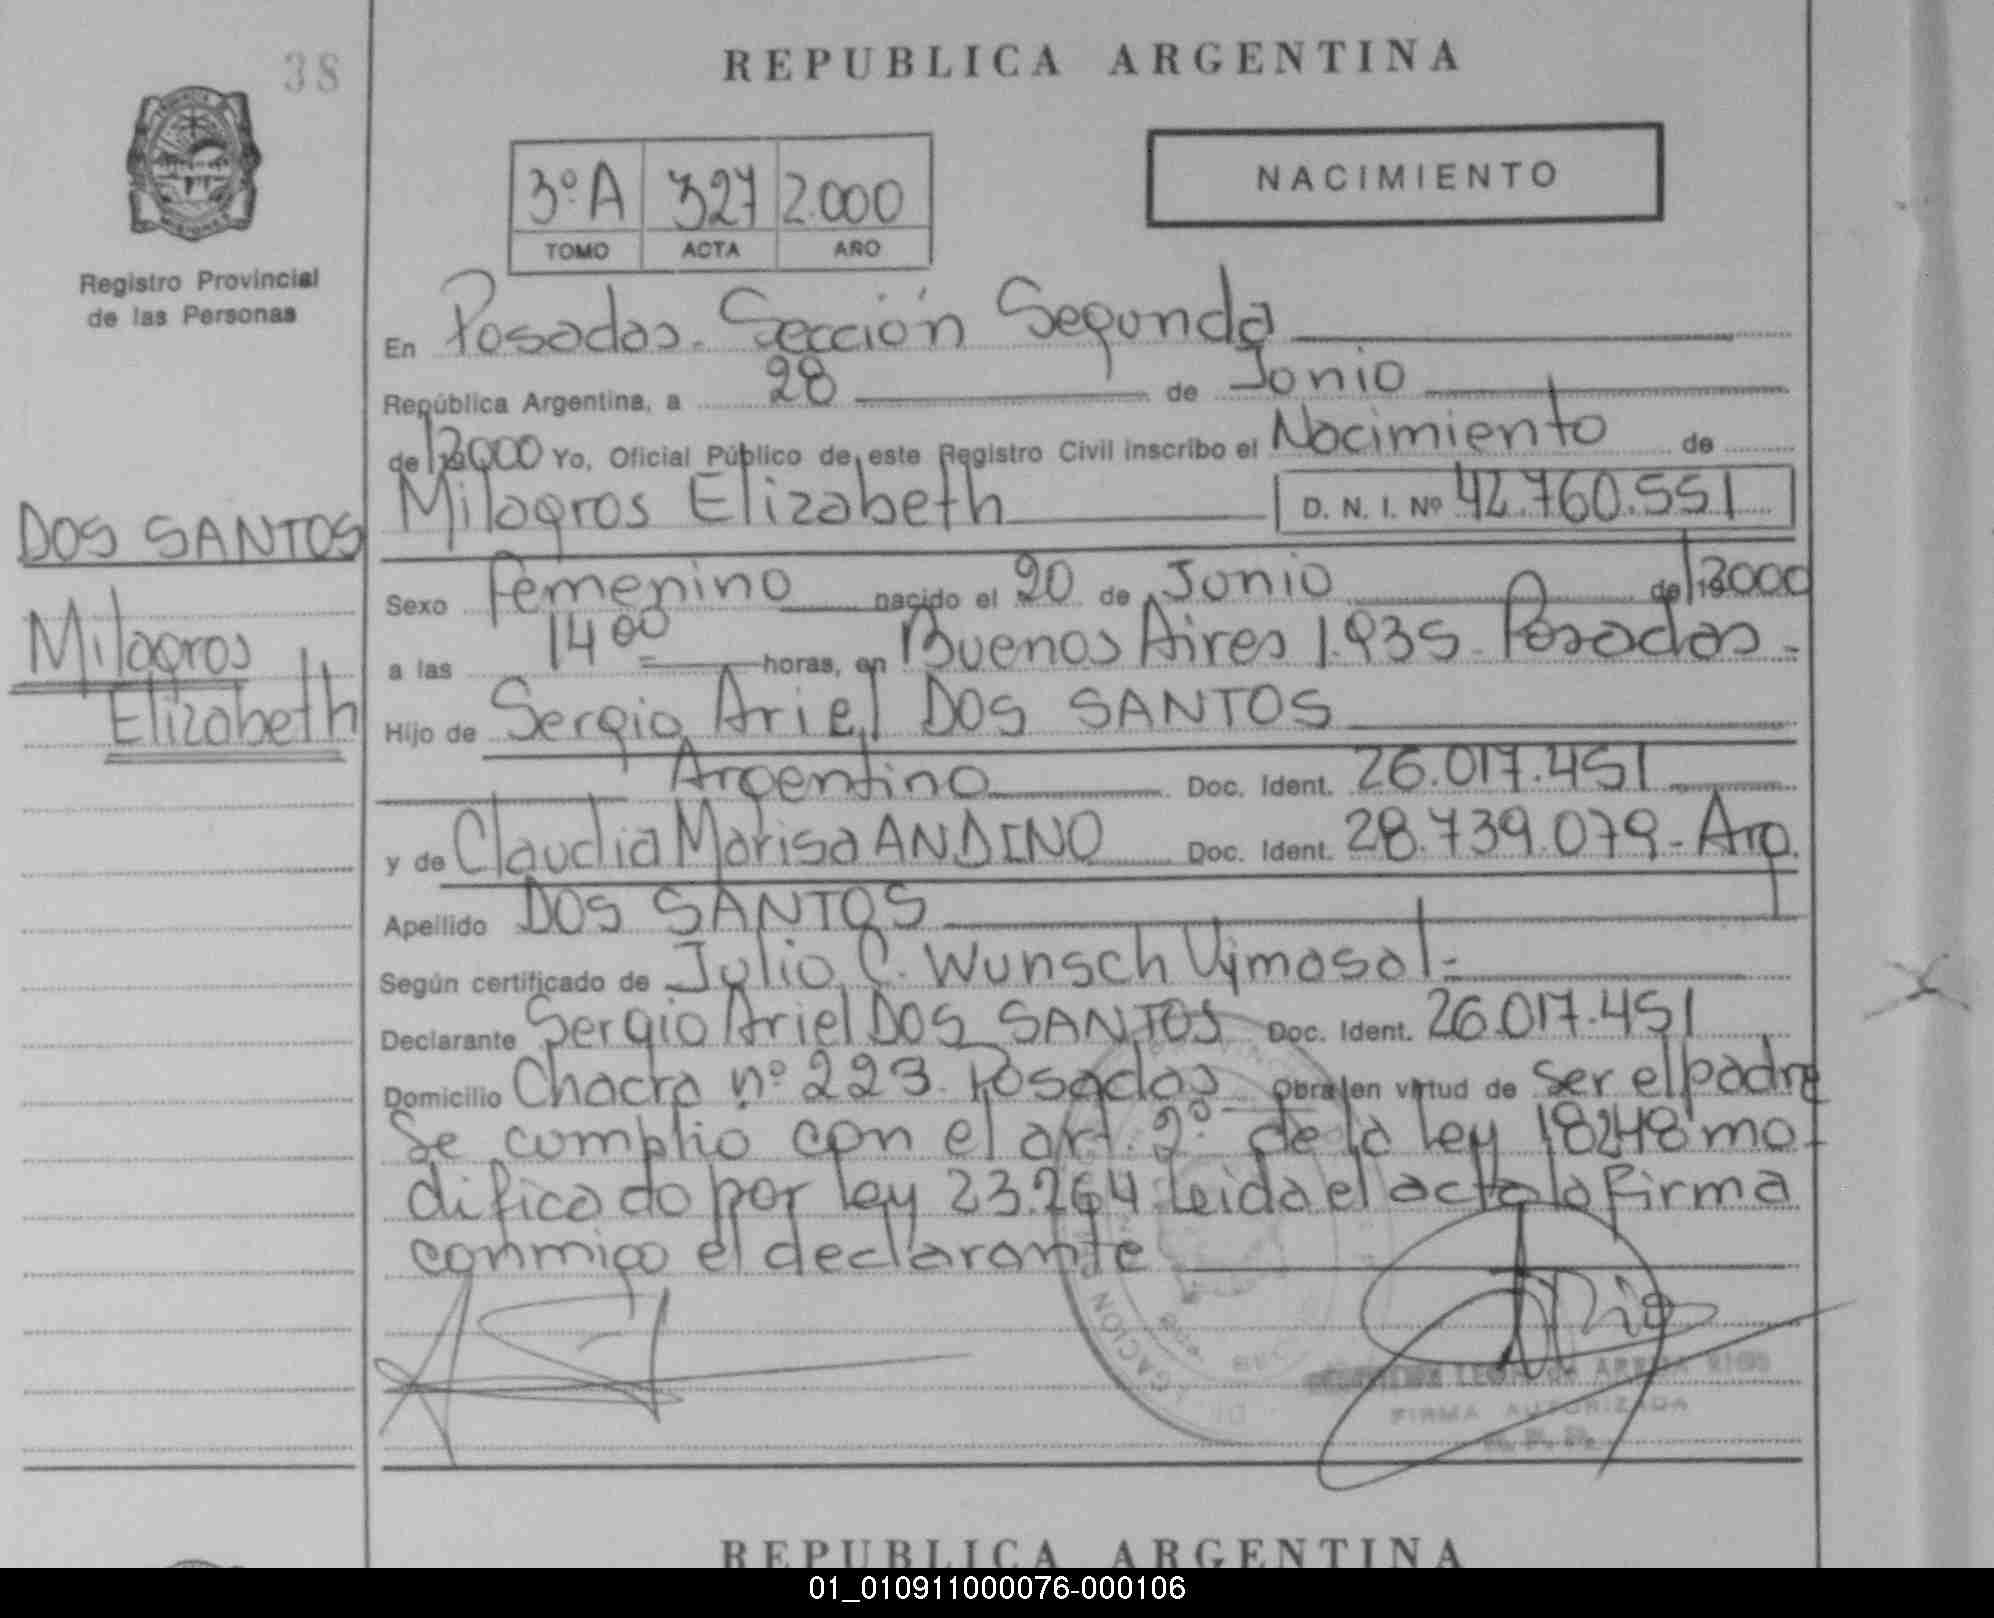 38
REPUBLICA ARGENTINA
NACIMIENTO
3º A 327 2.000
TOMO ACTA AÑO
Registro Provincial
de las Personas
En Posadas. Sección Segunda
República Argentina, a 28 de Junio
de 2000 Yo, Oficial Público de este Registro Civil inscribo el Nacimiento de
Milagros Elizabeth D. N. I. Nº 42.760.551
DOS SANTOS
Milagros
Elizabeth
Sexo Femenino nacido el 20 de Junio de 2000
a las 14 00 horas, en Buenos Aires 1.935 - Posadas -
Hijo de Sergio Ariel DOS SANTOS
Argentino Doc. Ident. 26.017.451
y de Claudia Marisa ANDINO Doc. Ident. 28.739.079 - Arg.
Apellido DOS SANTOS
Según certificado de Julio C. Wunsch
Declarante Sergio Ariel DOS SANTOS Doc. Ident. 26.017.451
Domicilio Chacra nº 223. Posadas Obra en virtud de ser el padre
Se cumplio con el art. 2º de la ley 18248 mo-
dificado por ley 23.264. Leida el acta la firma
conmigo el declarante
FIRMA AUTORIZADA
REPUBLICA ARGENTINA
01_010911000076-000106